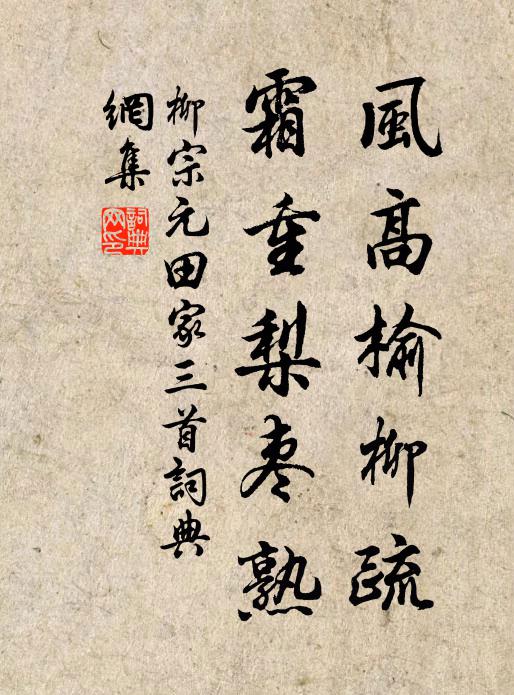 風高榆柳疏
霜重梨枣熟
柳宗元田家三首詞典
網集
詞典
网印